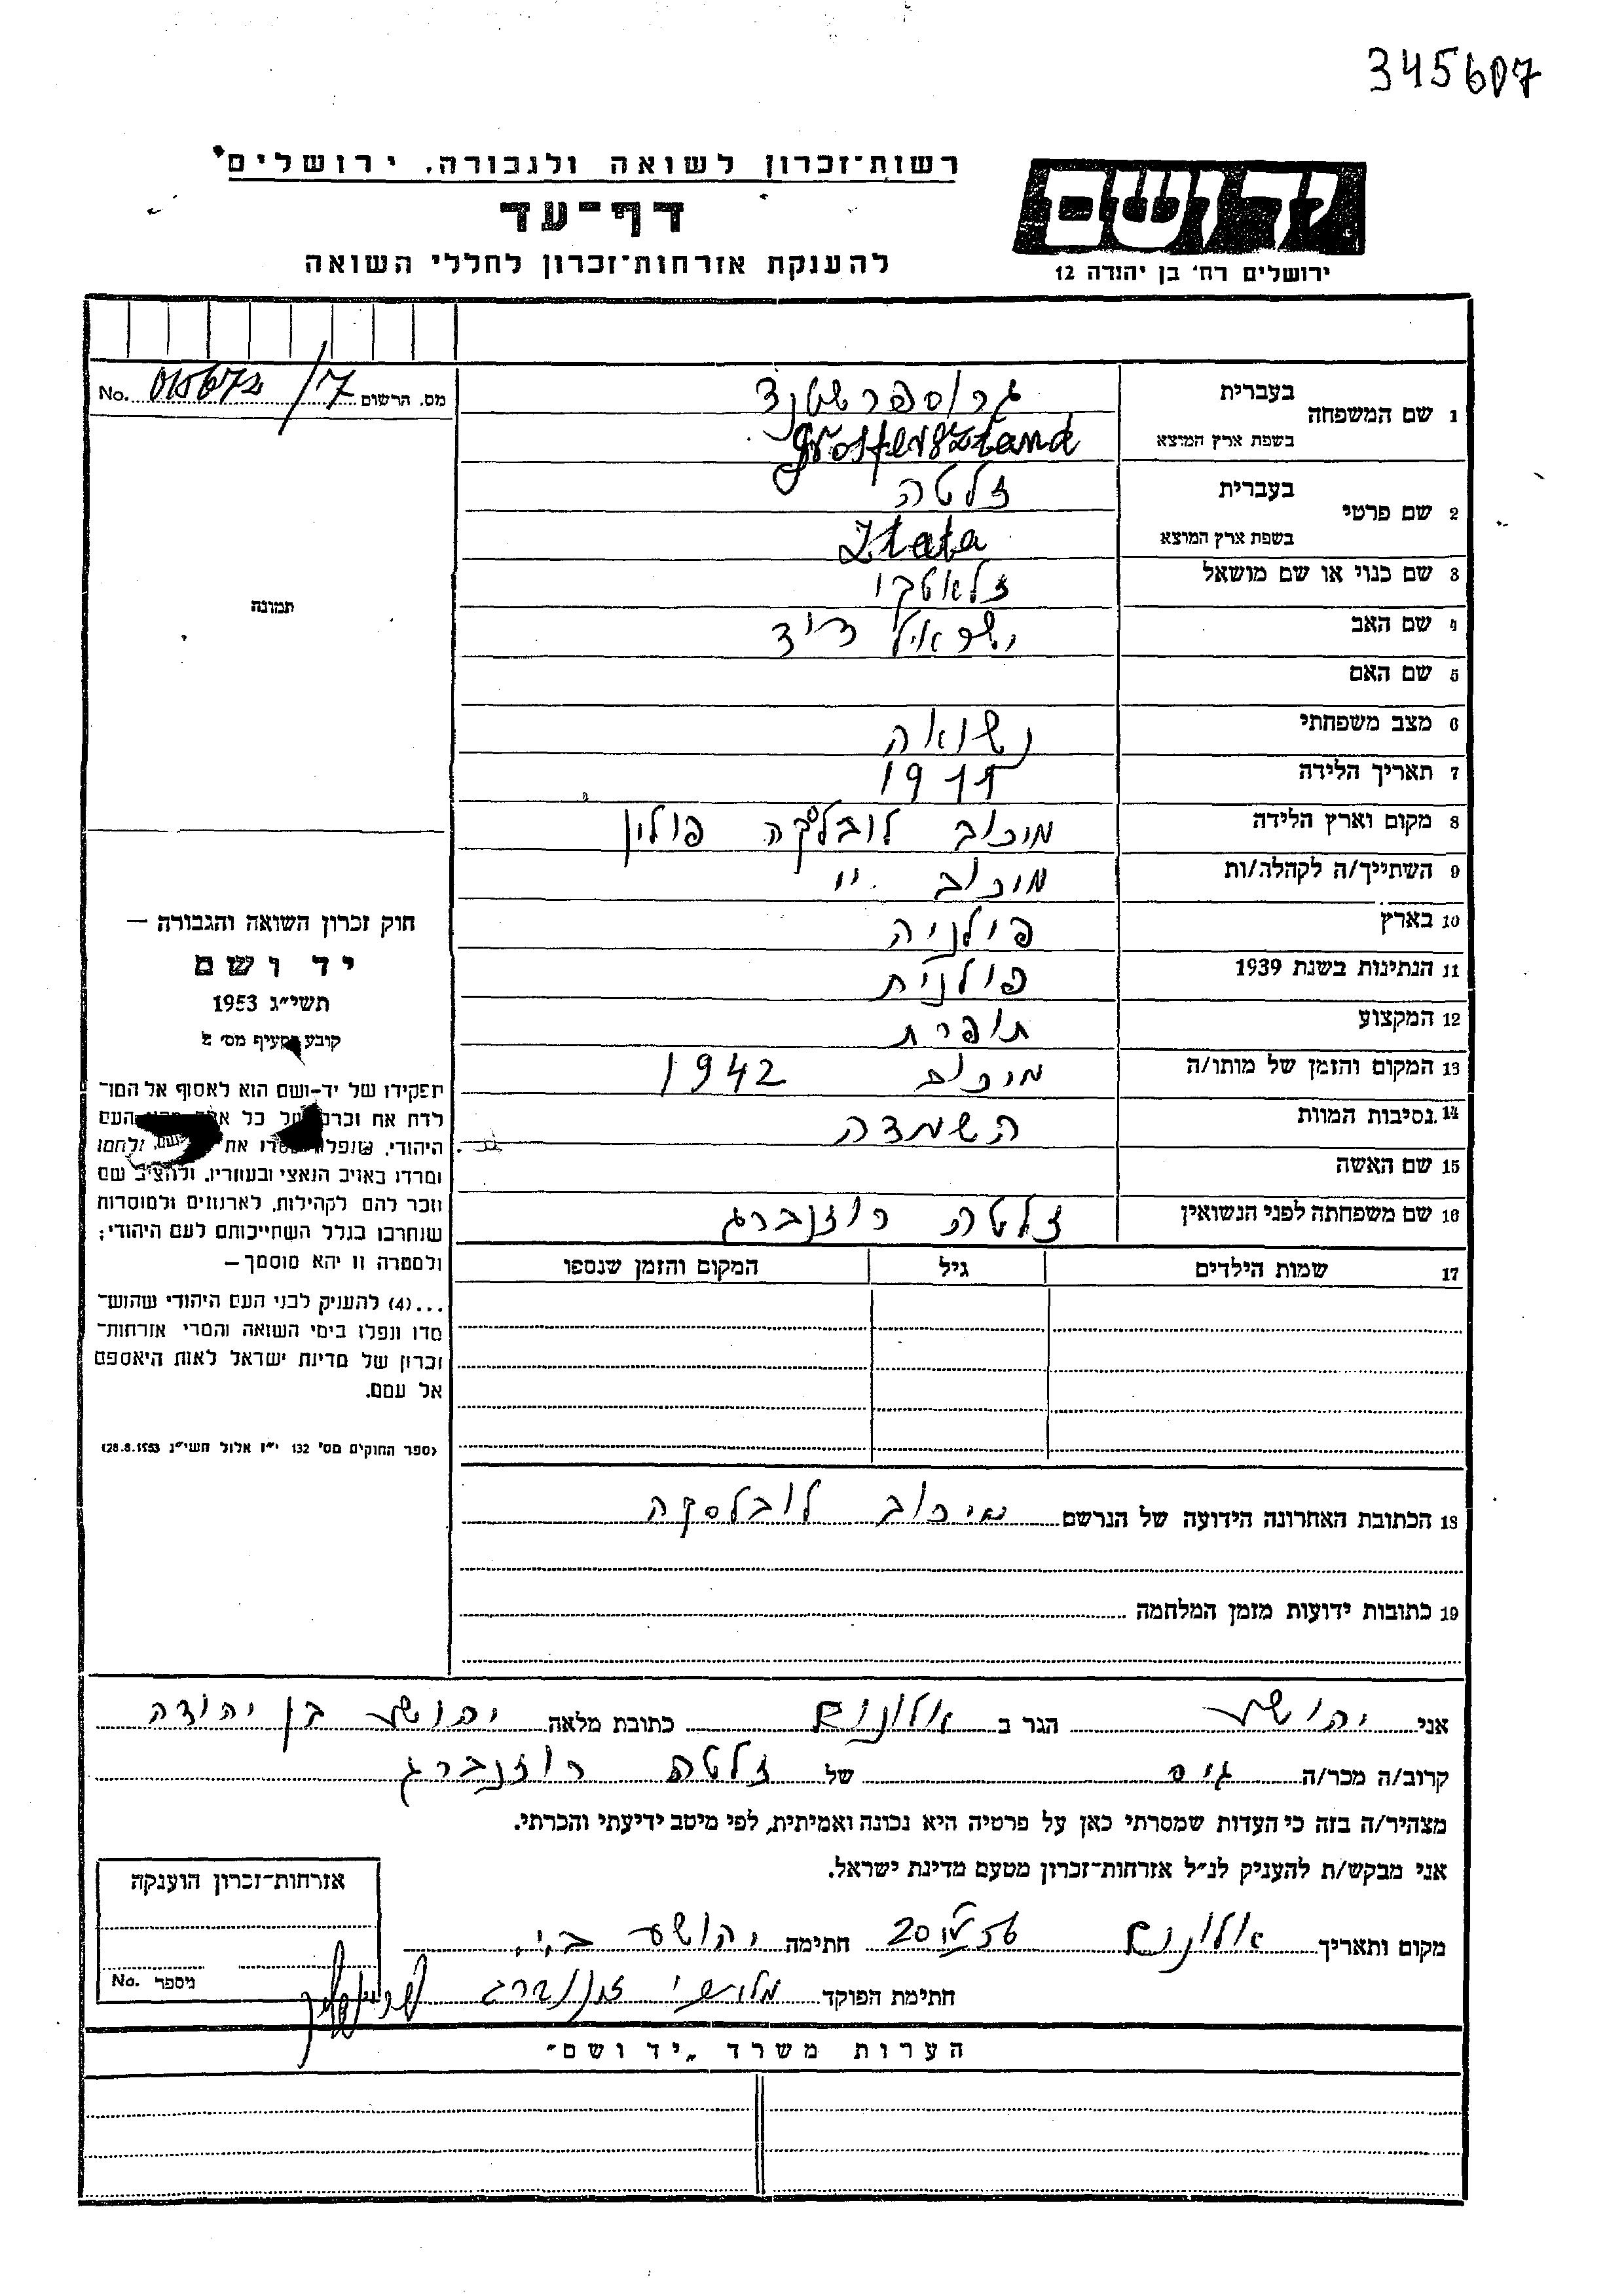 345607
רשות־זכרון לשואה ולגבורה, ירושלים
דף־עד
להענקת אזרחות־זכרון לחללי השואה
יד ושם
ירושלים רח׳ בן יהודה 12
No. 015672/7 מס. הרשום
1 שם המשפחה בעברית גרוספרשטנד
בשפת ארץ המוצא Grosfersztand
2 שם פרטי בעברית זלטה
בשפת ארץ המוצא Zlata
3 שם כנוי או שם מושאל
4 שם האב ישראל דיד
5 שם האם
6 מצב משפחתי נשואה
7 תאריך הלידה 1911
8 מקום וארץ הלידה לובלסקה פולין
9 השתייך/ה לקהלה/ות
10 בארץ פולניה
11 הנתינות בשנת 1939 פולנית
12 המקצוע תופרת
13 המקום והזמן של מותו/ה 1942
14 נסיבות המוות השמדה
15 שם האשה
16 שם משפחתה לפני הנשואין זלטה רוזנברג
17 שמות הילדים גיל המקום והזמן שנספו
18 הכתובת האחרונה הידועה של הנרשם לובלסקה
19 כתובות ידועות מזמן המלחמה
תמונה
חוק זכרון השואה והגבורה –
יד ושם
תשי״ג 1953
קובע בסעיף מס׳ 2
תפקידו של יד־ושם הוא לאסוף אל המו־
לדת את זכרם של כל אלה מבני העם
היהודי, שנפלו ומסרו את נפשם, ולחמו
ומרדו באויב הנאצי ובעוזריו, ולהציב שם
וזכר להם לקהילות, לארגונים ולמוסדות
שנחרבו בגלל השתייכותם לעם היהודי;
ולמטרה זו יהא מוסמך –
...(4) להעניק לבני העם היהודי שהוש־
מדו ונפלו בימי השואה והמרי אזרחות־
זכרון של מדינת ישראל לאות היאספם
אל עמם.
(ספר החוקים מס׳ 132 י״ז אלול תשי״ג 28.8.1953)
אני יהושע הגר ב אלונים כתובת מלאה יהושע בן יהודה
קרוב/ה מכר/ה גיס של זלטה רוזנברג
מצהיר/ה בזה כי העדות שמסרתי כאן על פרטיה היא נכונה ואמיתית, לפי מיטב ידיעתי והכרתי.
אני מבקש/ת להעניק לנ״ל אזרחות־זכרון מטעם מדינת ישראל.
מקום ותאריך אלונים 20 56 חתימה יהושע ב.י.
חתימת הפוקד
אזרחות־זכרון הוענקה
No. מספר
הערות משרד „יד ושם״